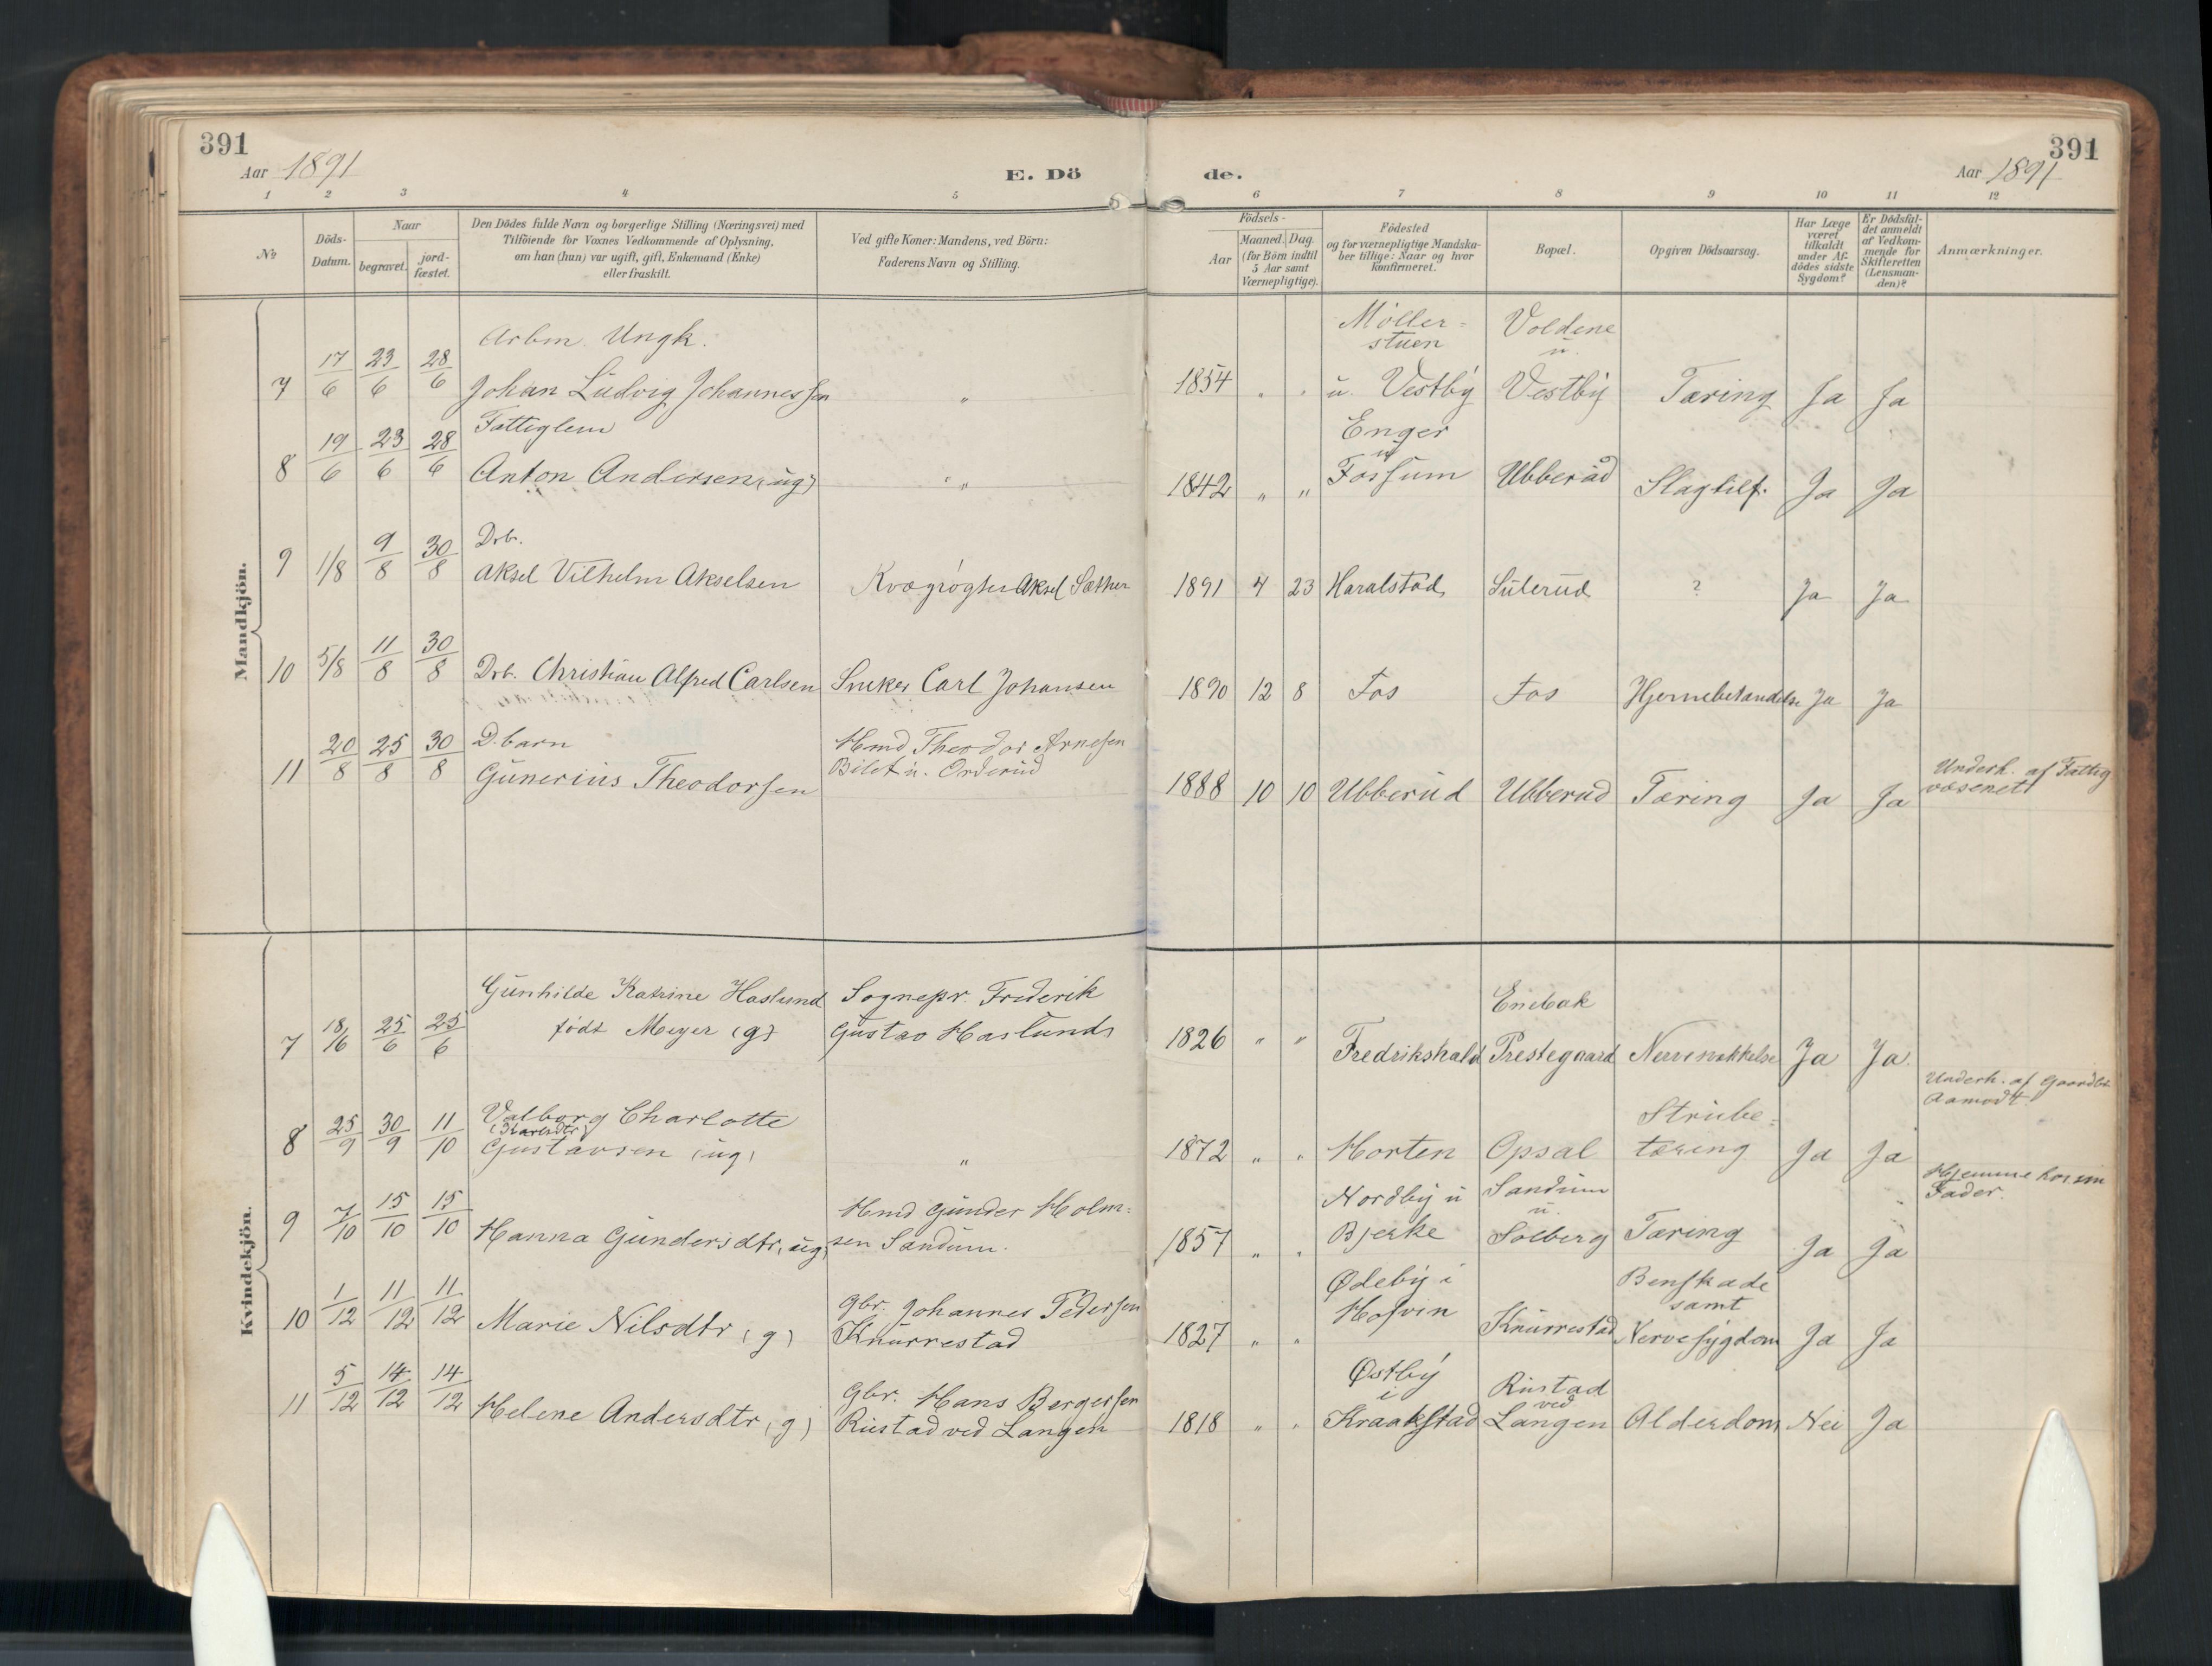 391
Aar 1891
E. Dö
1 2 3 4 5
№
Döds-
Datum.
Naar
begravet.
jord-
fæstet.
Den Dödes fulde Navn og borgerlige Stilling (Næringsvei) med
Tilföiende for Voxnes Vedkommende af Oplysning,
om han (hun) var ugift, gift, Enkemand (Enke)
eller fraskilt.
Ved gifte Koner: Mandens, ved Börn:
Faderens Navn og Stilling.
Mandkjön.
Arbm. Ungk.
7 17/6 23/6 28/6 Johan Ludvig Johannessen "
Fattiglem
8 19/6 23/6 28/6 Anton Andersen (ug) "
Drb.
9 1/8 9/8 30/8 Aksel Vilhelm Akselsen Kvægrögter Aksel Sæther
10 5/8 11/8 30/8 Drb. Christian Alfred Carlsen Sneker Carl Johansen
D.barn Hmd Theodor Arnesen
11 20/8 25/8 30/8 Gunerius Theodorsen Bilet u. Orderud
Kvindekjön.
Gunhilde Katrine Haslund Sognepr. Frederik
7 18/6 25/6 25/6 födt Meyer (g) Gustav Haslund
Valborg Charlotte
8 25/9 30/9 11/10 Gustavsen (ug) "
Hmd Gunder Holm-
9 7/10 15/10 15/10 Hanna Gundersdtr. ug. sen Sandum.
Gbr. Johannes Pedersen
10 1/12 11/12 11/12 Marie Nilsdtr (g) Knurrestad
Gbr. Hans Bergersen
11 5/12 14/12 14/12 Helene Andersdtr (g) Rustad ved Langen
391
de.
Aar 1891
6 7 8 9 10 11 12
Födsels-
Aar
Maaned. Dag.
(for Börn indtil
5 Aar samt
Værnepligtige).
Födested
og for værnepligtige Mandska-
ber tillige: Naar og hvor
konfirmeret.
Bopæl.
Opgiven Dödsaarsag.
Har Læge
været
tilkaldt
under Af-
dödes sidste
Sygdom?
Er Dödsfal-
det anmeldt
af Vedkom-
mende for
Skifteretten
(Lensman-
den)?
Anmærkninger.
Möller- Voldene
stuen u.
1854 " " u. Vestby Vestby Tæring Ja Ja
Enger
u
1842 " " Fossum Ubberåd Slagtilf. Ja Ja
1891 4 23 Haralstad Sulerud ? Ja Ja
1890 12 8 Fos Fos Hjernebetændelse Ja Ja
Underh. af Fattig
væsenet
1888 10 10 Ubberud Ubberud Tæring Ja Ja
Enebak
1826 " " Fredrikshald Prestegaard Nervesvekkelse Ja Ja
Underh. af Gaardbr.
Aamodt
Strube-
1872 " " Horten Opsal tæring Ja Ja
Hjemme hos sin
Fader.
Nordby u Sandum
u.
1857 " " Bjerke Solberg Tæring Ja Ja
Ødeby i Benskade
Hofvin samt
1827 " " Knurrestad Nervesygdom Ja Ja
Østby Rustad
i ved
1818 " " Kraakstad Langen Alderdom Nei Ja